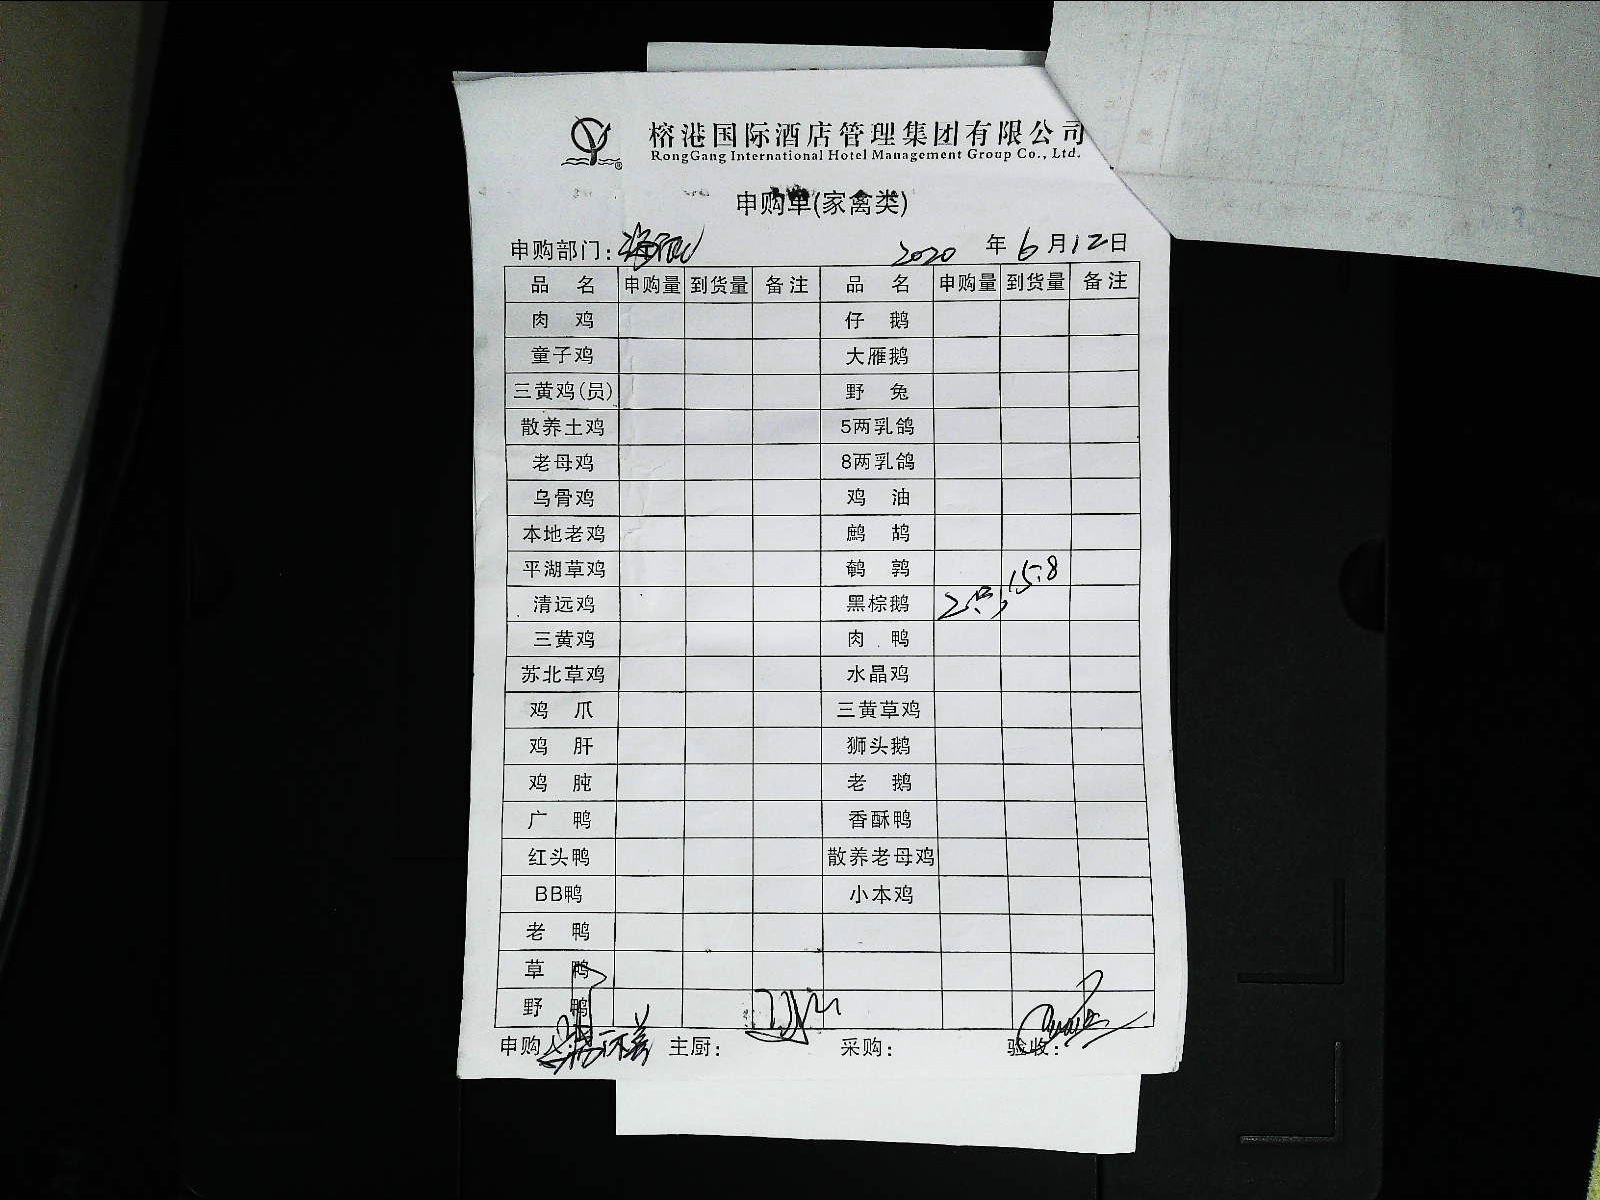 榕港国际酒店管理集团有限公司
RongGang International Hotel Management Group Co., Ltd.
申购单(家禽类)
申购部门: 2020 年 6 月 12 日
品 名 申购量 到货量 备注 品 名 申购量 到货量 备注
肉 鸡 仔 鹅
童子鸡 大雁鹅
三黄鸡(员) 野 兔
散养土鸡 5两乳鸽
老母鸡 8两乳鸽
乌骨鸡 鸡 油
本地老鸡 鹧 鸪
平湖草鸡 鹌 鹑
清远鸡 黑棕鹅 2只, 15.8
三黄鸡 肉 鸭
苏北草鸡 水晶鸡
鸡 爪 三黄草鸡
鸡 肝 狮头鹅
鸡 肫 老 鹅
广 鸭 香酥鸭
红头鸭 散养老母鸡
BB鸭 小本鸡
老 鸭
草 鸭
野 鸭
申购人: 主厨: 采购: 验收: